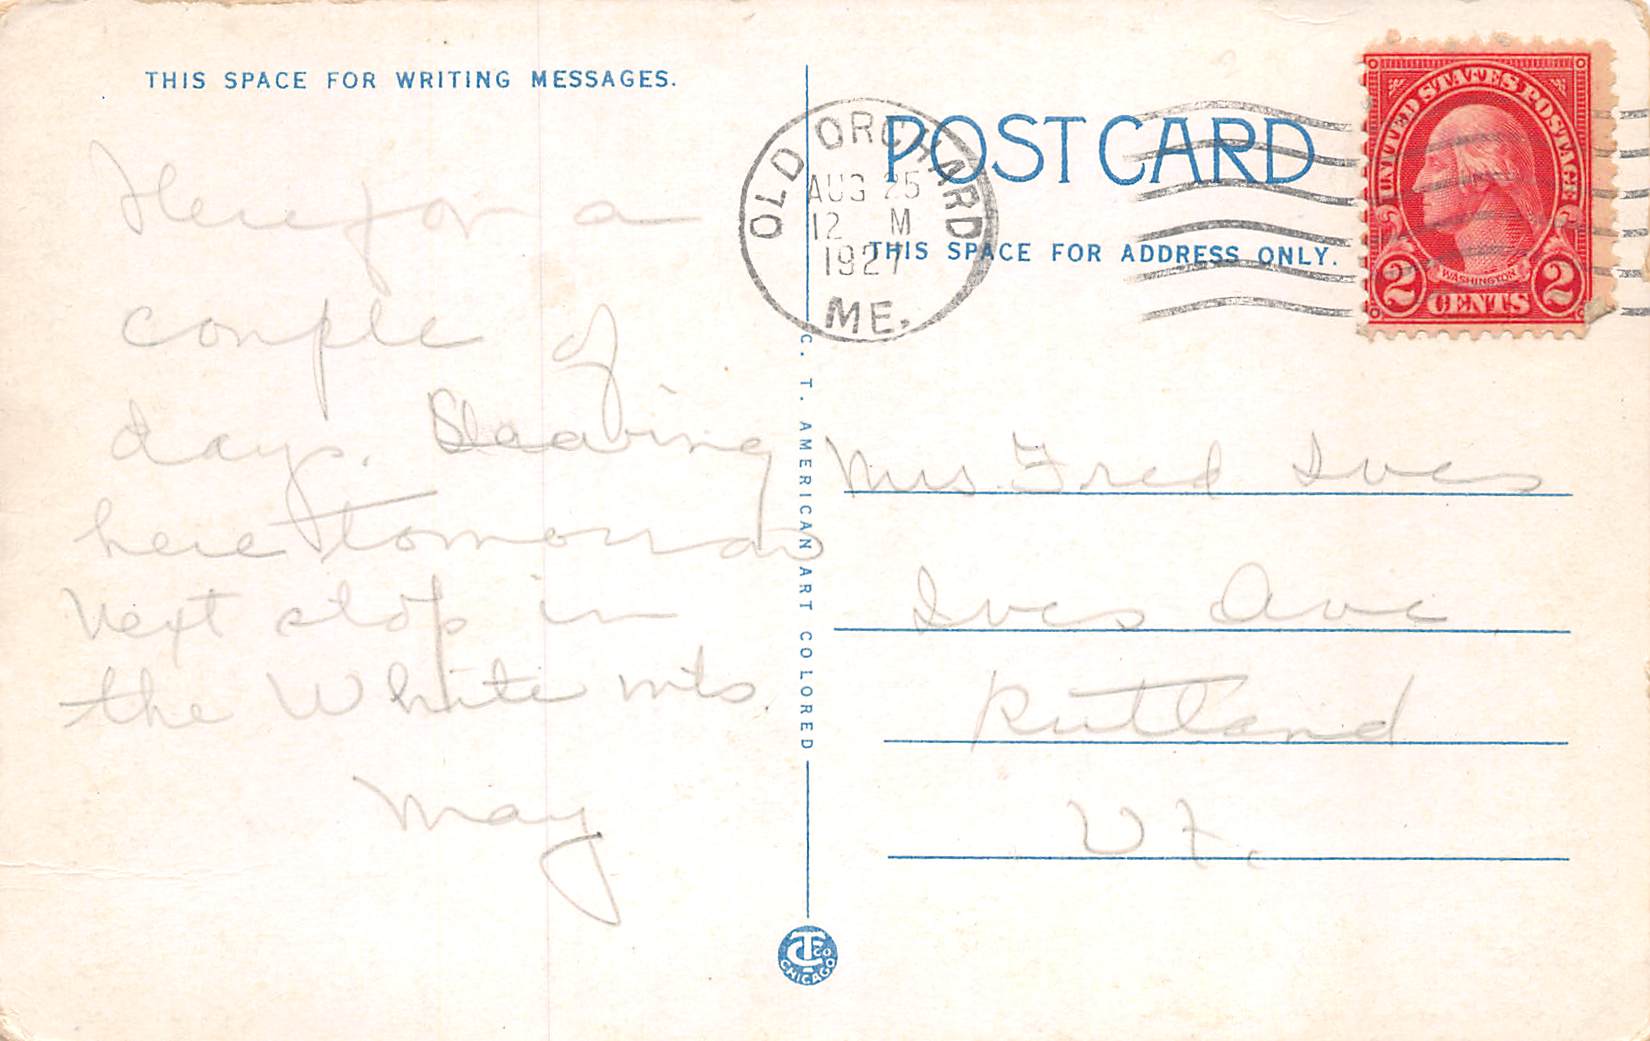 THIS SPACE FOR WRITING MESSAGES.
Here for a
couple of
days. Leaving
here tomorrow
Next stop in
the White mts.
May
OLD ORCHARD
AUG 25
12 M
1927
ME.
POST CARD
THIS SPACE FOR ADDRESS ONLY.
UNITED STATES POSTAGE
WASHINGTON
2 CENTS 2
C. T. AMERICAN ART COLORED
Mrs. Fred Ives
Ives Ave
Rutland
Vt.
CT CO
CHICAGO